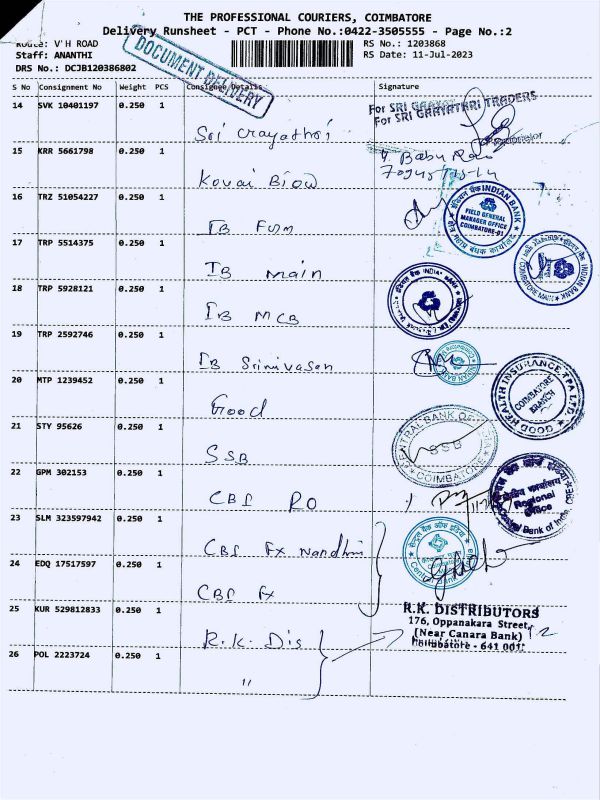 THE PROFESSIONAL COURIERS, COIMBATORE
Delivery Runsheet - PCT - Phone No.:0422-3505555 - Page No.:2
Route: V'H ROAD
RS No.: 1203868
Staff: ANANTHI
RS Date: 11-Jul-2023
DRS No.: DCJB120386802
DOCUMENT DELIVERY
S No Consignment No Weight PCS Consignee Details Signature
14 SVK 10401197 0.250 1
For SRI GAAYATHRI TRADERS
Sri Gayathri
15 KRR 5661798 0.250 1
Babu
Kovai Biow
16 TRZ 51054227 0.250 1
INDIAN BANK
FIELD GENERAL
MANAGER OFFICE
COIMBATORE-01
IB FGM
17 TRP 5514375 0.250 1
INDIAN BANK
IB Main
18 TRP 5928121 0.250 1
IB MCB
19 TRP 2592746 0.250 1
IB Srinivasan
INDIAN BANK
20 MTP 1239452 0.250 1
GOOD HEALTH INSURANCE TPA LTD.
COIMBATORE
BRANCH
Good
21 STY 95626 0.250 1
CENTRAL BANK OF
SSB
COIMBATORE
SSB
22 GPM 302153 0.250 1
Regional
Office
Central Bank of India
CBI RO
23 SLM 323597942 0.250 1
सेन्ट्रल बैंक ऑफ इंडिया
CBI FX Nandhini
24 EDQ 17517597 0.250 1
CBI Fx
25 KUR 529812833 0.250 1
R.K. DISTRIBUTORS
176, Oppanakara Street,
(Near Canara Bank)
Coimbatore - 641 001.
R.K. Dis
26 POL 2223724 0.250 1
"